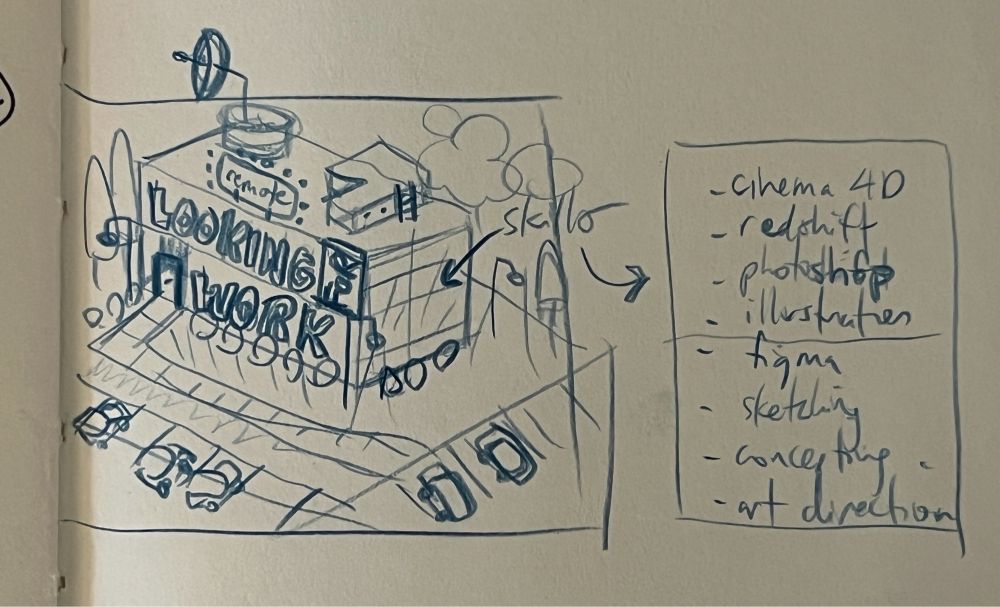 remote
LOOKING
FOR
WORK
skills
- cinema 4D
- redshift
- photoshop
- illustration
- figma
- sketching
- concepting
- art direction